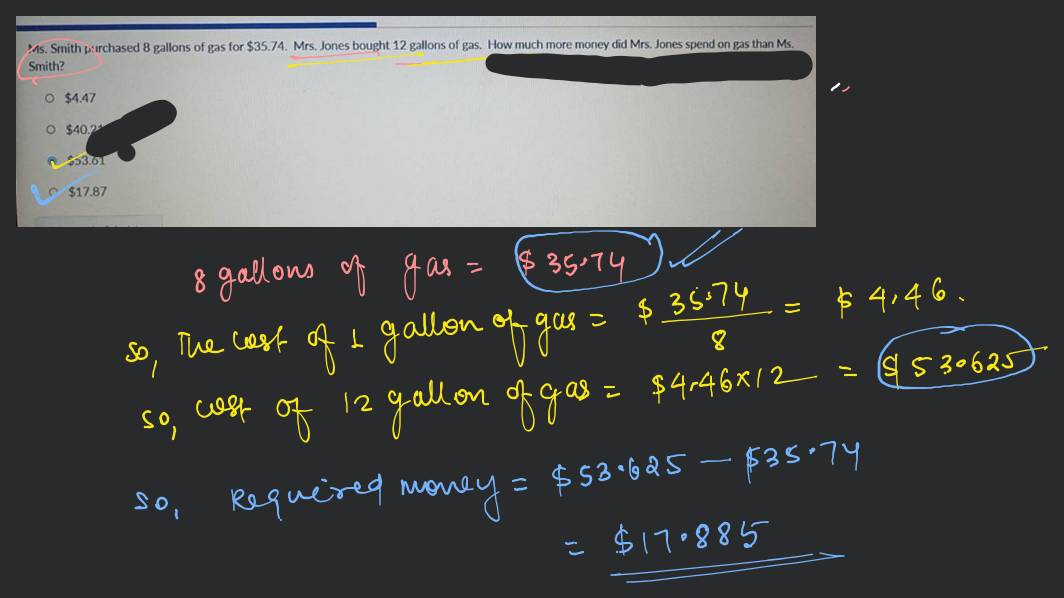 Ms. Smith purchased 8 gallons of gas for $35.74. Mrs. Jones bought 12 gallons of gas. How much more money did Mrs. Jones spend on gas than Ms.
Smith?
$4.47
$40.21
$53.61
$17.87
8 gallons of gas = $35.74
so, The cost of 1 gallon of gas = $ 35.74 / 8 = $ 4.46.
so, cost of 12 gallon of gas = $4.46×12 = $53.625
so, Required money = $53.625 — $35.74
= $17.885